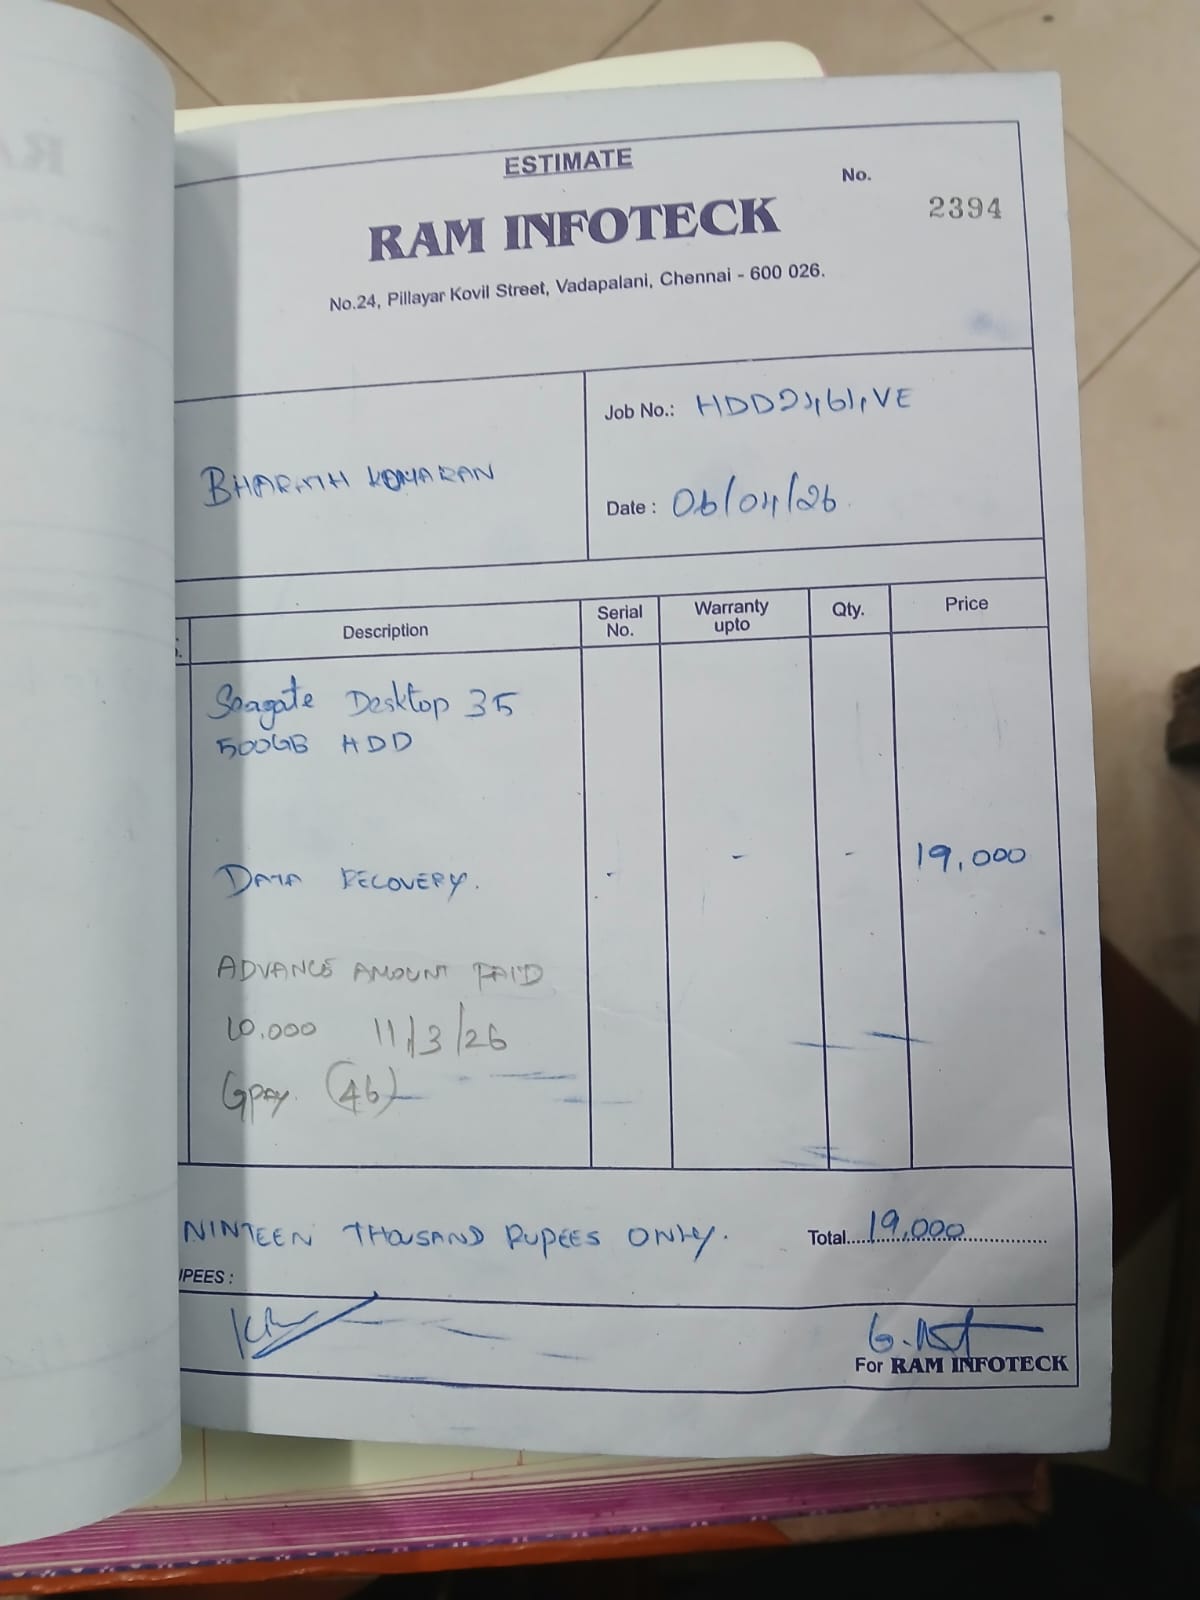 ESTIMATE
No.
2394
RAM INFOTECK
No.24, Pillayar Kovil Street, Vadapalani, Chennai - 600 026.
Job No.:
BHARATH KUMARAN
Date : 06/04/26
Description Serial No. Warranty upto Qty. Price
Seagate Desktop 35
500GB HDD
DATA RECOVERY. - - - 19,000
ADVANCE AMOUNT PAID
10,000 11/3/26
Gpay. (46)
NINTEEN THOUSAND RUPEES ONLY. Total 19,000
UPEES :
For RAM INFOTECK